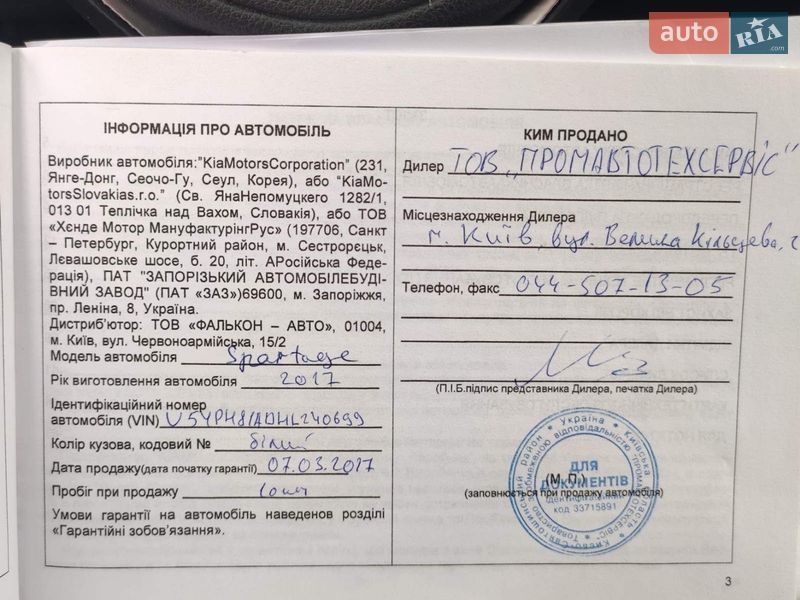 auto RIA.com
ІНФОРМАЦІЯ ПРО АВТОМОБІЛЬ
Виробник автомобіля:"KiaMotorsCorporation" (231,
Янге-Донг, Сеочо-Гу, Сеул, Корея), або "KiaMo-
torsSlovakias.r.o." (Св. ЯнаНепомуцкего 1282/1,
013 01 Теплічка над Вахом, Словакія), або ТОВ
«Хєнде Мотор МануфактурінгРус» (197706, Санкт
– Петербург, Курортний район, м. Сестрорєцьк,
Лєвашовське шосе, б. 20, літ. АРосійська Феде-
рація), ПАТ "ЗАПОРІЗЬКИЙ АВТОМОБІЛЕБУДІ-
ВНИЙ ЗАВОД" (ПАТ «ЗАЗ»)69600, м. Запоріжжя,
пр. Леніна, 8, Україна.
Дистриб'ютор: ТОВ «ФАЛЬКОН – АВТО», 01004,
м. Київ, вул. Червоноармійська, 15/2
Модель автомобіля Sportage
Рік виготовлення автомобіля 2017
Ідентифікаційний номер
автомобіля (VIN) U5YPH81ADHL240699
Колір кузова, кодовий № білий
Дата продажу(дата початку гарантії) 07.03.2017
Пробіг при продажу 10км
Умови гарантії на автомобіль наведенов розділі
«Гарантійні зобов'язання».
КИМ ПРОДАНО
Дилер ТОВ „ПРОМАВТОТЕХСЕРВІС"
Місцезнаходження Дилера
м. Київ, вул. Велика Кільцева,
Телефон, факс 044-507-13-05
(П.І.Б.підпис представника Дилера, печатка Дилера)
(М. П.)
(заповнюється при продажу автомобіля)
Україна * Київська область
Києво-Святошинський район
Товариство з обмеженою відповідальністю "ПРОМАВТОТЕХСЕРВІС"
ДЛЯ
ДОКУМЕНТІВ
Ідентифікаційний
код 33715891
3